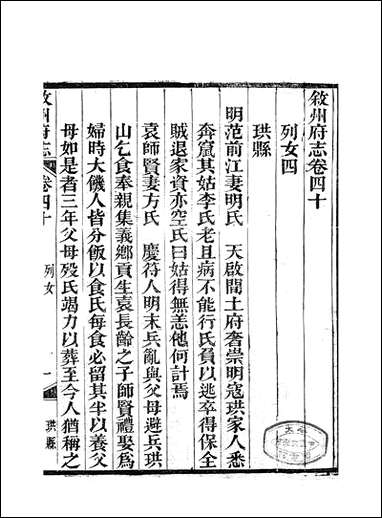 敘州府志卷四十
列女四
珙縣
明范前江妻明氏　天啟間土府奢崇明寇珙家人悉
奔竄其姑李氏老且病不能行氏負以逃卒得保全
賊退家資亦空氏曰姑得無恙他何計焉
袁師賢妻方氏　慶符人明末兵亂與父母避兵珙
山乞食奉親集義鄉貢生袁長齡之子師賢禮娶為
婦時大饑人皆分飯以食氏每食必留其半以養父
母如是者三年父母歿氏竭力以葬至今人猶稱之
敘州府志
卷四十
列女
一
珙縣